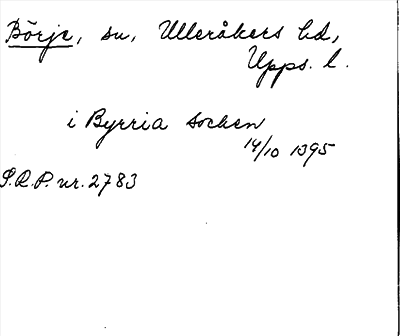 Börje, sn, Ulleråkers hd,
Upps. l.
i Byrria socken
14/10 1395
S.R.P. nr. 2783